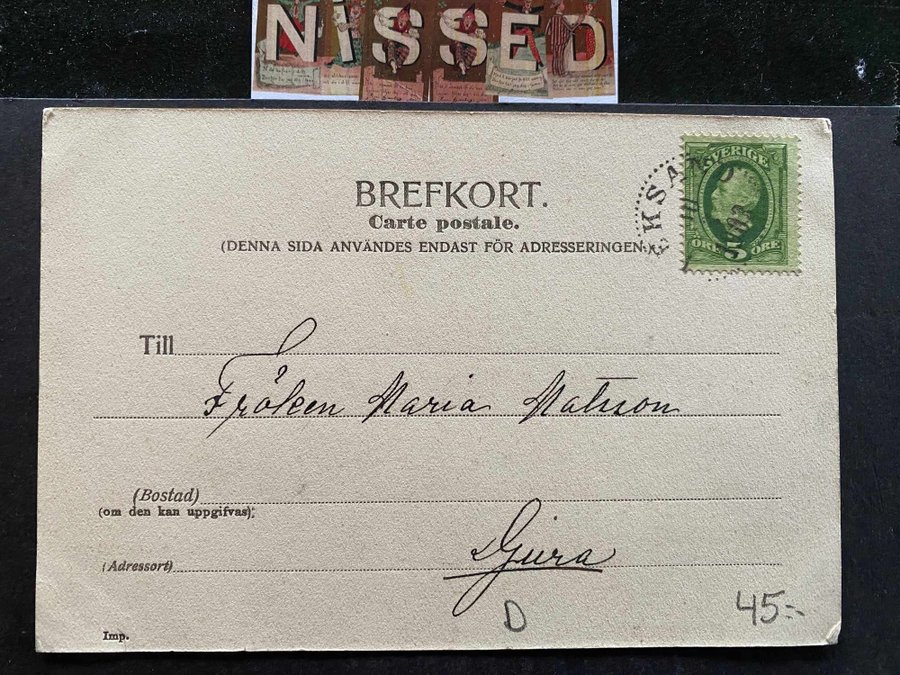 NISSED
BREFKORT.
Carte postale.
(DENNA SIDA ANVÄNDES ENDAST FÖR ADRESSERINGEN
SVERIGE
5
ÖRE ÖRE
Till
Fröken Maria Matsson
(Bostad)
(om den kan uppgifvas):
Gjura
(Adressort)
D
45:-
Imp.